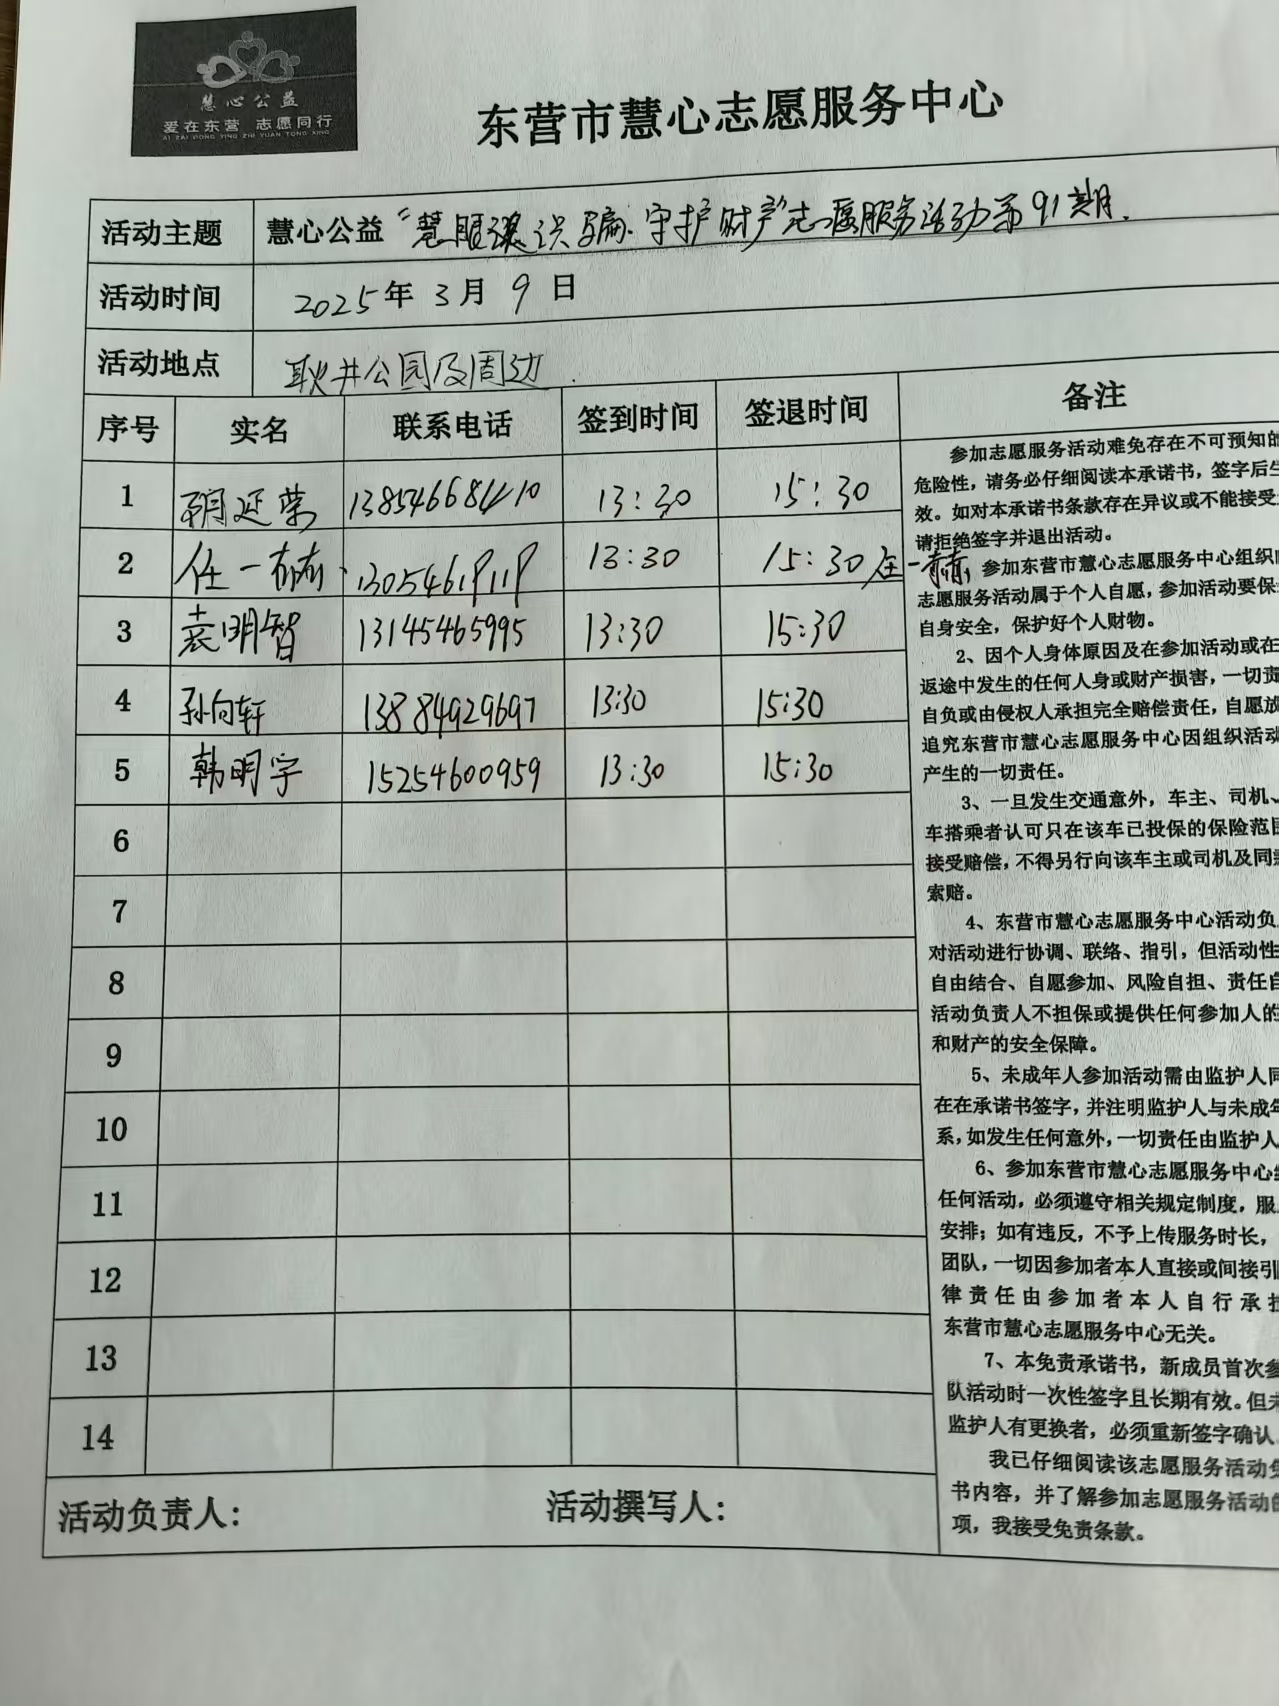 慧心公益
爱在东营 志愿同行
AI ZAI DONG YING ZHI YUAN TONG XING
东营市慧心志愿服务中心
活动主题 慧心公益“慧眼识骗·守护财产”志愿服务活动第91期.
活动时间 2025年 3月 9日
活动地点 耿井公园及周边.
序号 实名 联系电话 签到时间 签退时间 备注
1 延荣 13:30 15:30
2 任一赫 13054619119 13:30 15:30 任一赫
3 袁明智 13145465995 13:30 15:30
4 孙向轩 13884929697 13:30 15:30
5 韩明宇 15254600959 13:30 15:30
6
7
8
9
10
11
12
13
14
参加志愿服务活动难免存在不可预知的
危险性，请务必仔细阅读本承诺书，签字后生
效。如对本承诺书条款存在异议或不能接受
请拒绝签字并退出活动。
参加东营市慧心志愿服务中心组织
志愿服务活动属于个人自愿，参加活动要保
自身安全，保护好个人财物。
2、因个人身体原因及在参加活动或在
返途中发生的任何人身或财产损害，一切责
自负或由侵权人承担完全赔偿责任，自愿放
追究东营市慧心志愿服务中心因组织活动
产生的一切责任。
3、一旦发生交通意外，车主、司机、
车搭乘者认可只在该车已投保的保险范围
接受赔偿，不得另行向该车主或司机及同
索赔。
4、东营市慧心志愿服务中心活动负
对活动进行协调、联络、指引，但活动性
自由结合、自愿参加、风险自担、责任自
活动负责人不担保或提供任何参加人的
和财产的安全保障。
5、未成年人参加活动需由监护人同
在在承诺书签字，并注明监护人与未成年
系，如发生任何意外，一切责任由监护人
6、参加东营市慧心志愿服务中心
任何活动，必须遵守相关规定制度，服
安排；如有违反，不予上传服务时长，
团队，一切因参加者本人直接或间接引
律责任由参加者本人自行承担
东营市慧心志愿服务中心无关。
7、本免责承诺书，新成员首次参
队活动时一次性签字且长期有效。但未
监护人有更换者，必须重新签字确认
我已仔细阅读该志愿服务活动免
书内容，并了解参加志愿服务活动的
项，我接受免责条款。
活动负责人： 活动撰写人：